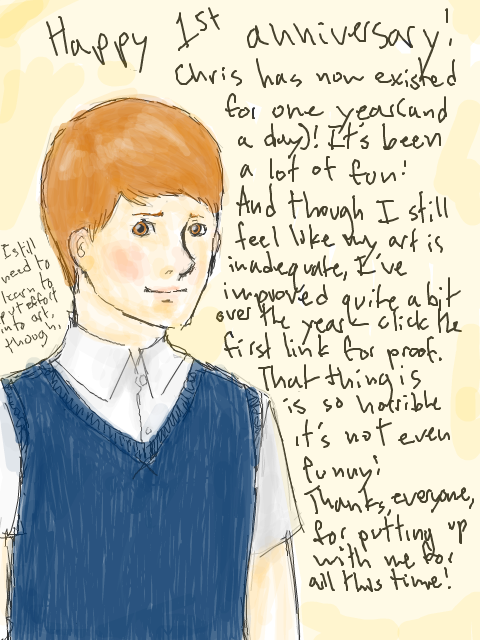 Happy 1st anniversary!
Chris has now existed
for one year(and
a day)! It's been
a lot of fun!
And though I still
feel like my art is
inadequate, I've
improved quite a bit
over the year- click the
first link for proof.
That thing is
is so horrible
it's not even
funny!
Thanks, everyone,
for putting up
with me for
all this time!
I still
need to
learn to
put effort
into art,
though.